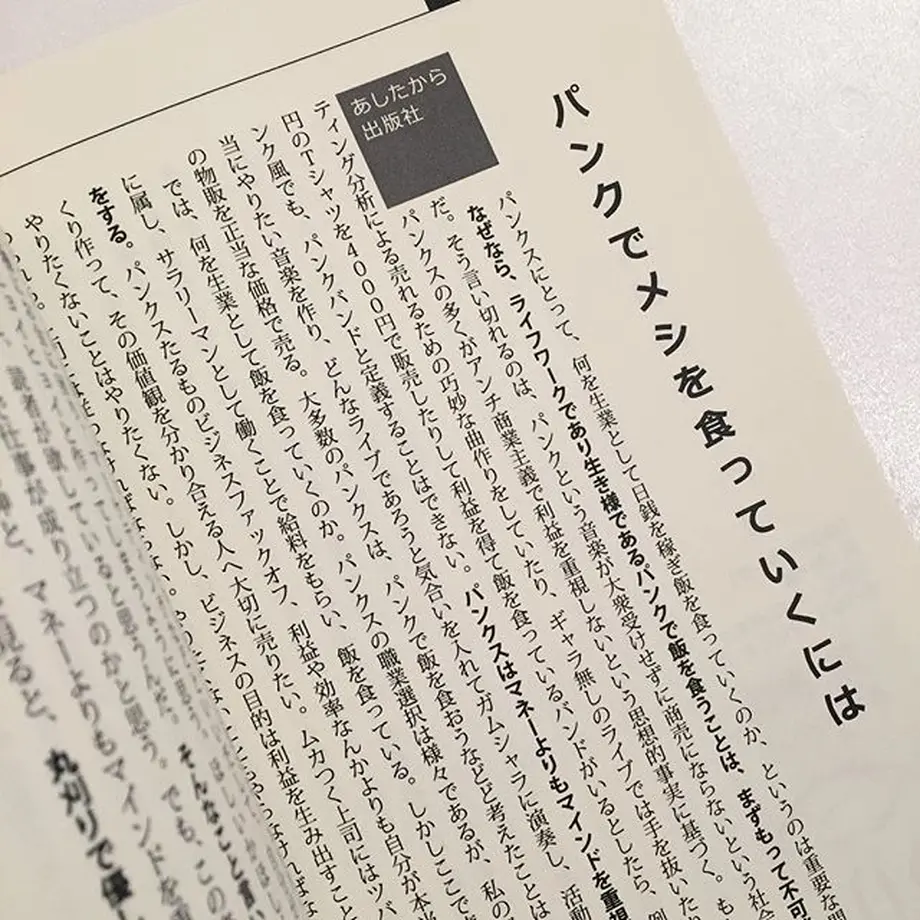 パンクでメシを食っていくには
あしたから
出版社
パンクスにとって、何を生業として日銭を稼ぎ飯を食っていくのか、というのは重要な
なぜなら、ライフワークであり生き様であるパンクで飯を食うことは、まずもって不可
だ。そう言い切れるのは、パンクという音楽が大衆受けせずに商売にならないという社
パンクスの多くがアンチ商業主義で利益を重視しないという思想的事実に基づく。も
ティング分析による売れるための巧妙な曲作りをしていたり、ギャラ無しのライブでは手を抜いたり、
円のTシャツを4000円で販売したりして利益を得て飯を食っているバンドがいるとしたら、
ンク風でも、パンクバンドと定義することはできない。パンクスはマネーよりもマインドを重視
当にやりたい音楽を作り、どんなライブであろうと気合いを入れてガムシャラに演奏し、活動
の物販を正当な価格で売る。大多数のパンクスは、パンクで飯を食おうなどと考えたことは
では、何を生業として飯を食っていくのか。パンクスの職業選択は様々であるが、私の
に属し、サラリーマンとして働くことで給料をもらい、飯を食っている。しかしここで
をする。パンクスたるものビジネスファックオフ、利益や効率なんかよりも自分が本当
くり作って、その価値観を分かり合える人へ大切に売りたい。ムカつく上司にはツバ
やりたくないことはやりたくない。しかし、ビジネスの目的は利益を生み出すこと
そんなこと言い
ていると思うんだ。
仕事が成り立つのかと思う。でも、この
見ると、マネーよりもマインドを
丸刈りで優